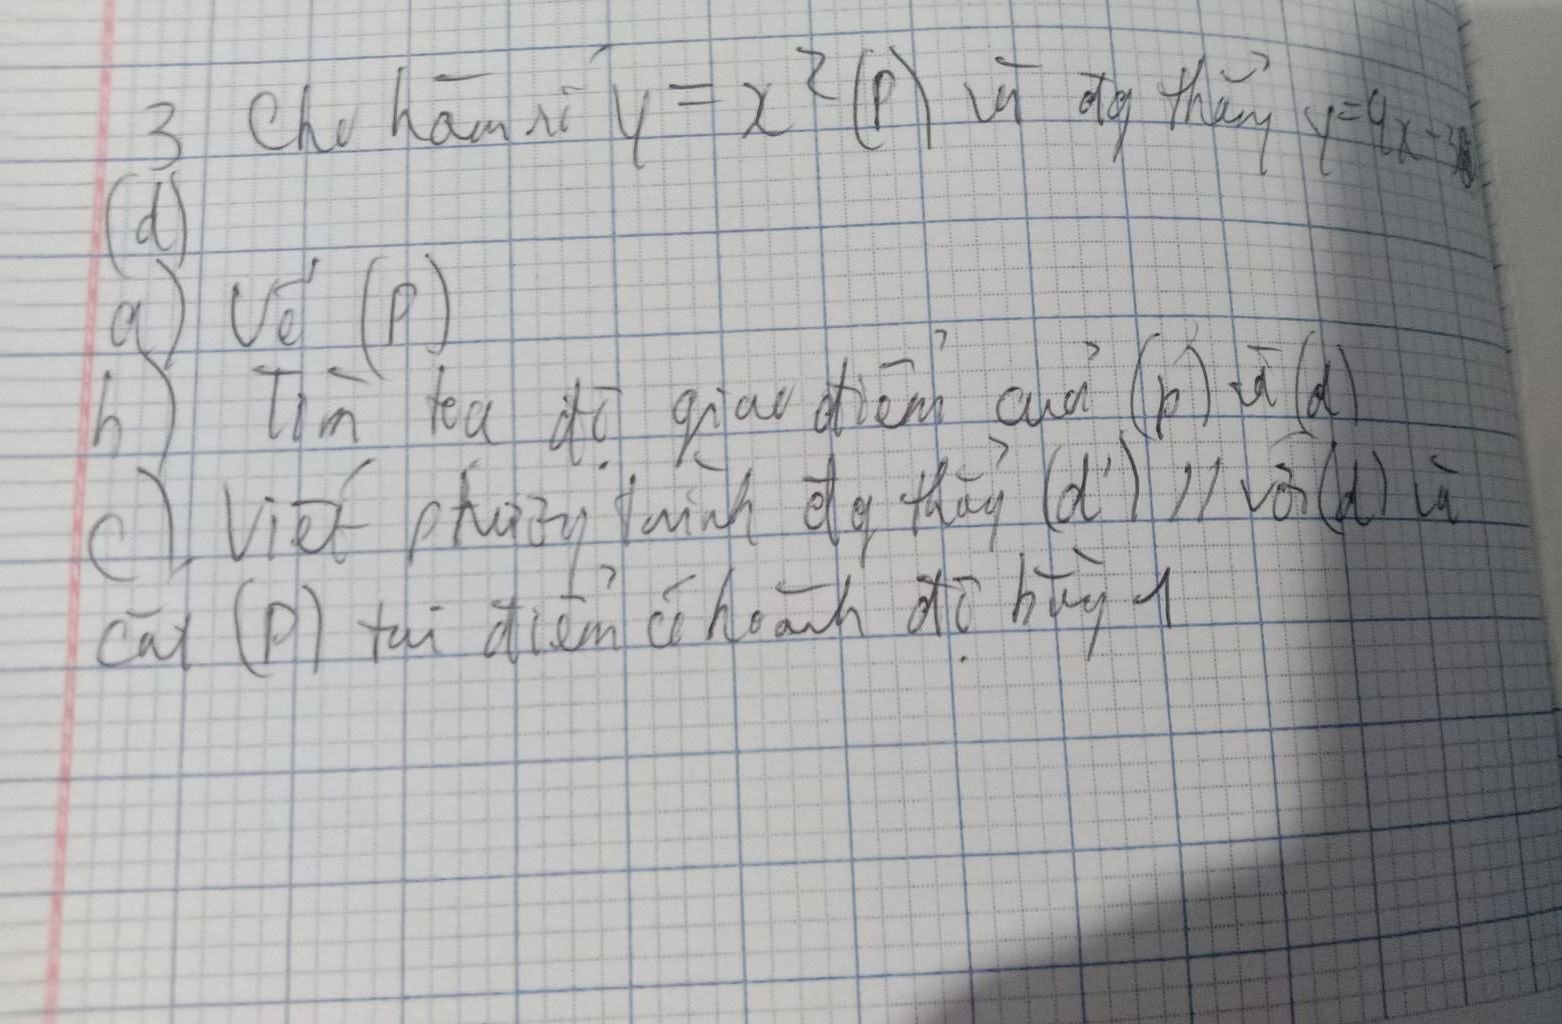 3 Cho hàm số y = x² (P) và đg thẳng y = 4x - 3
(d)
a) Vẽ (P)
b) Tìm tọa độ giao điểm của (P) và (d)
c) Viết phương trình đg thẳng (d') // với (d) và
cắt (P) tại điểm có hoành độ bằng 1